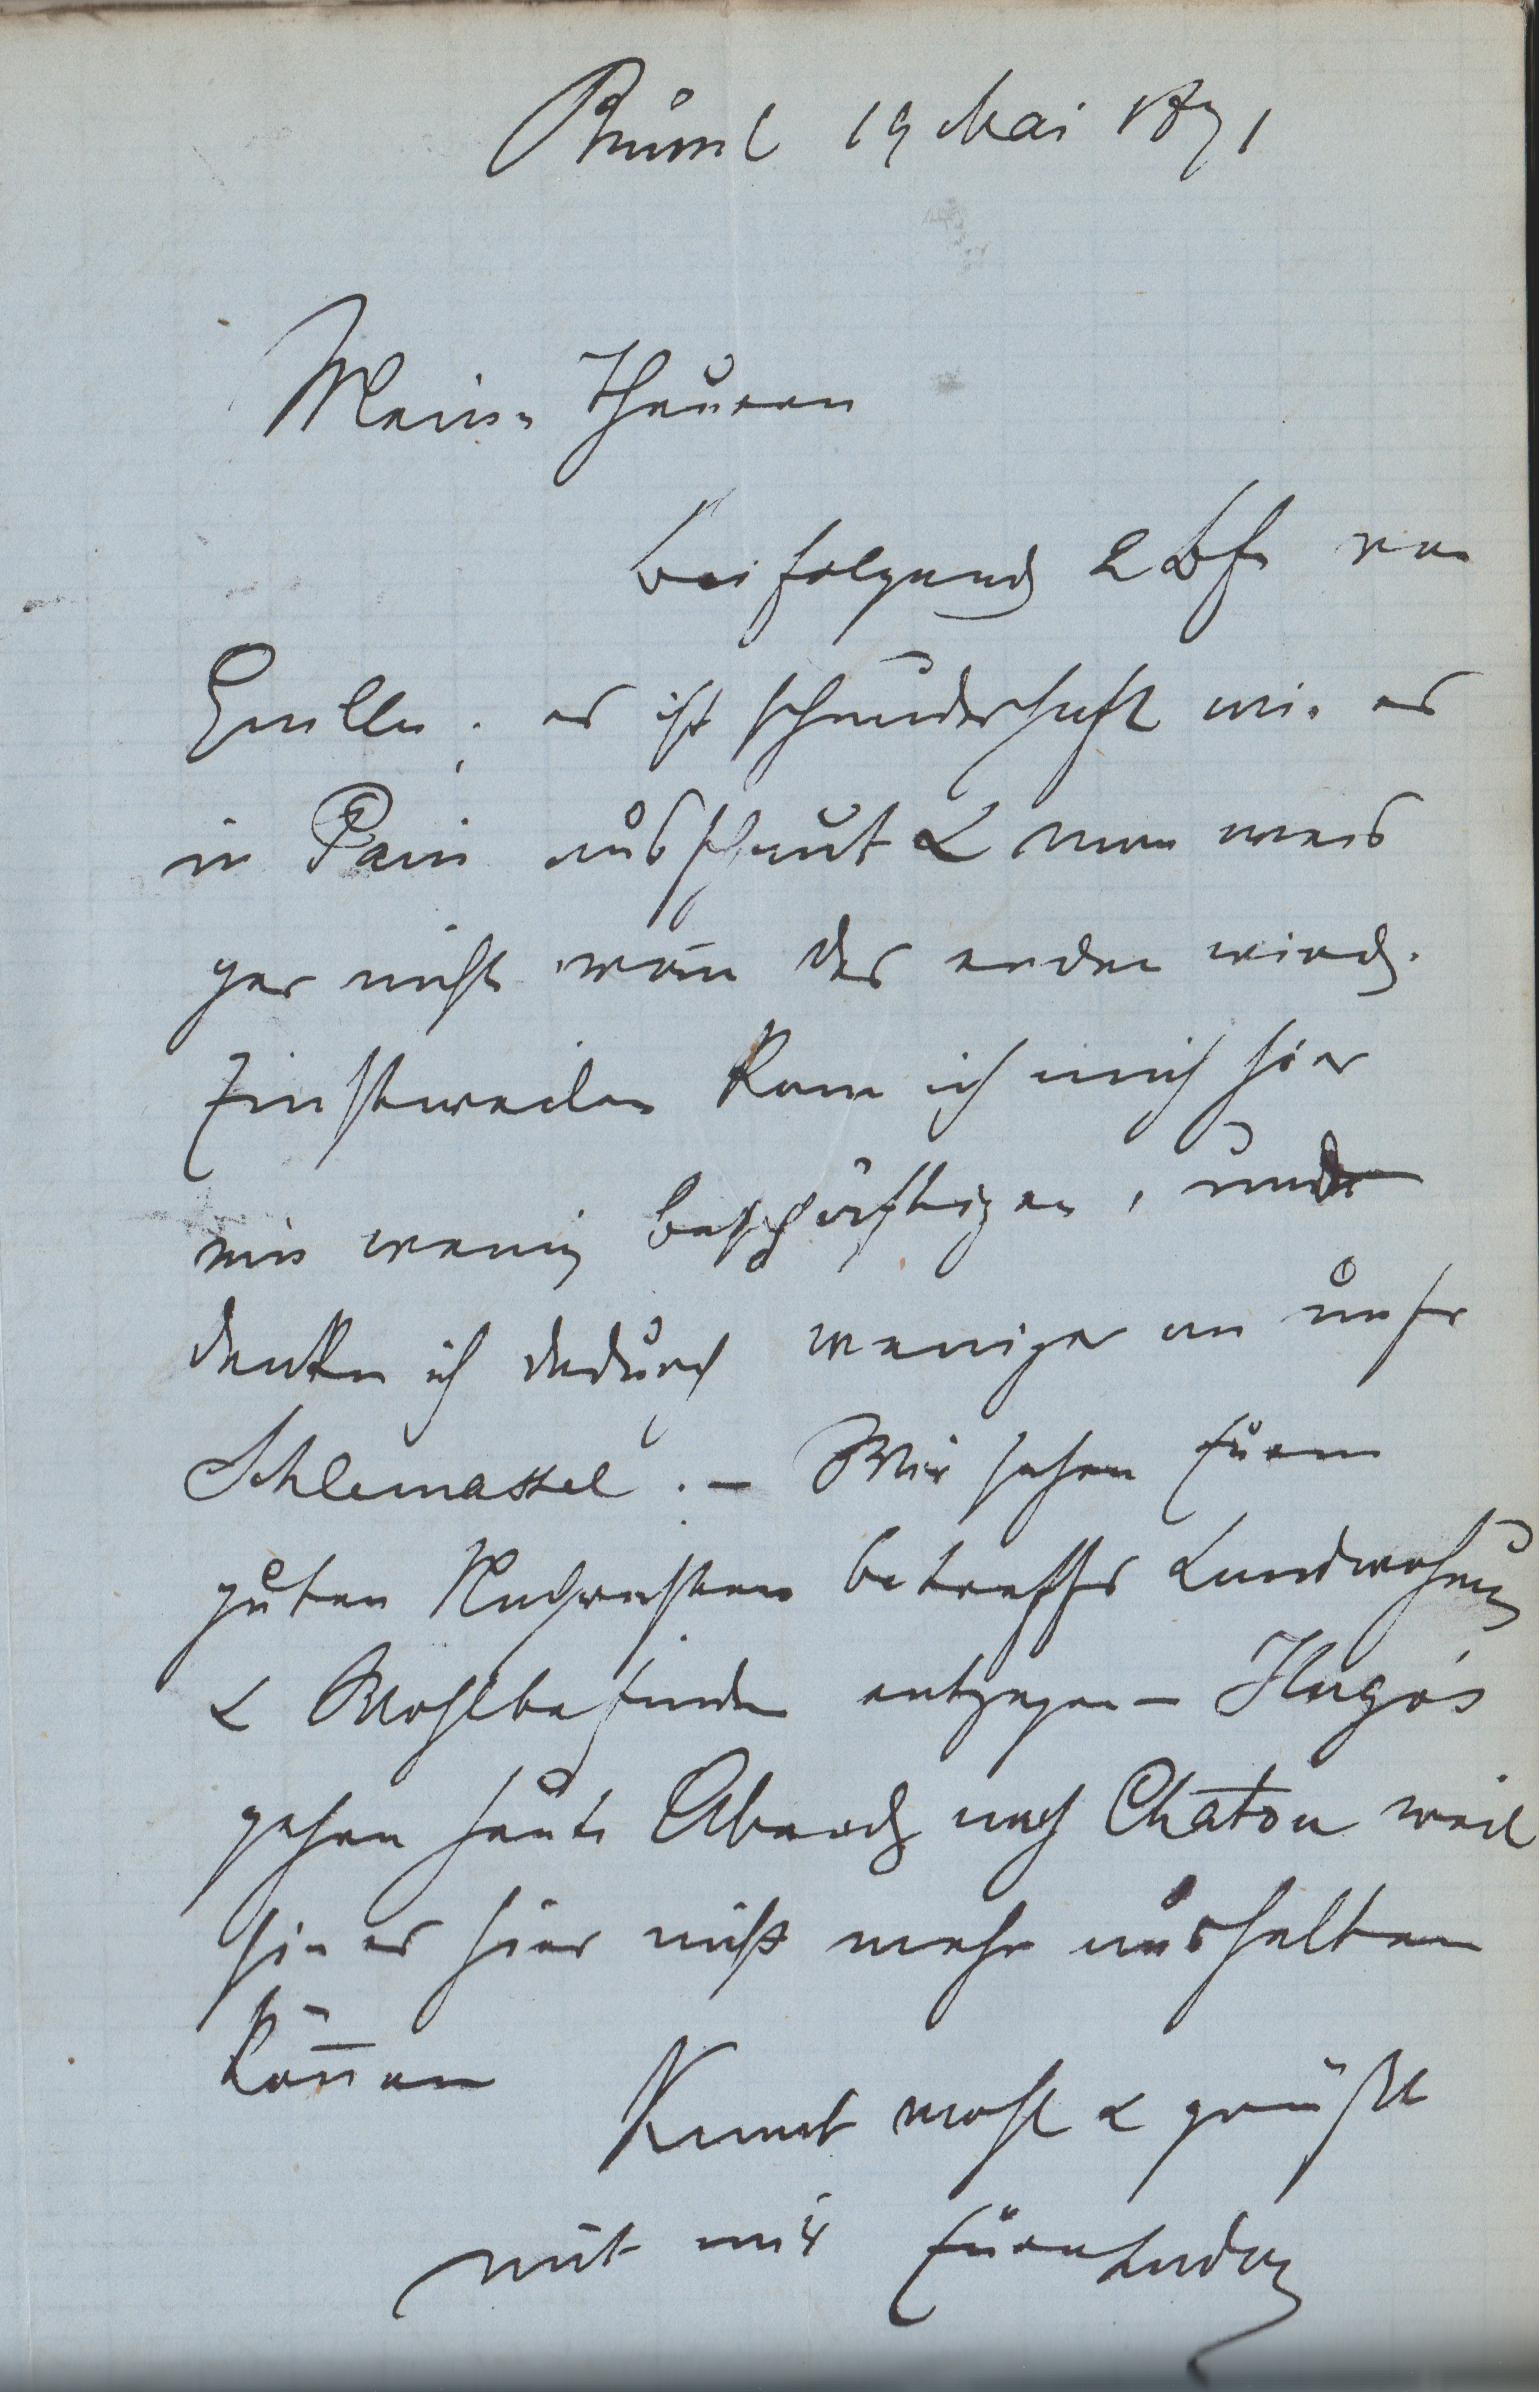 Brüssel 19 Mai 1871
Meine Theuren
beifolgend 2 Bfe von
es ist schauderhaft wie es
in Paris ausschaut & man weis
gar nicht wan das enden wird.
Einstweilen kann ich mich hier
ein wenig beschäftigen, und
denke ich dadurch weniger an unser
Schlemassel. – Wir sehen Euern
guten Nachrichten betreffs Landwohnung
& Wohlbefinden entgegen – Hugo's
gehen heute Abend nach Chatou weil
sie es hier nicht mehr aushalten
kön̄en
wohl & grüßt
mit mir Euern